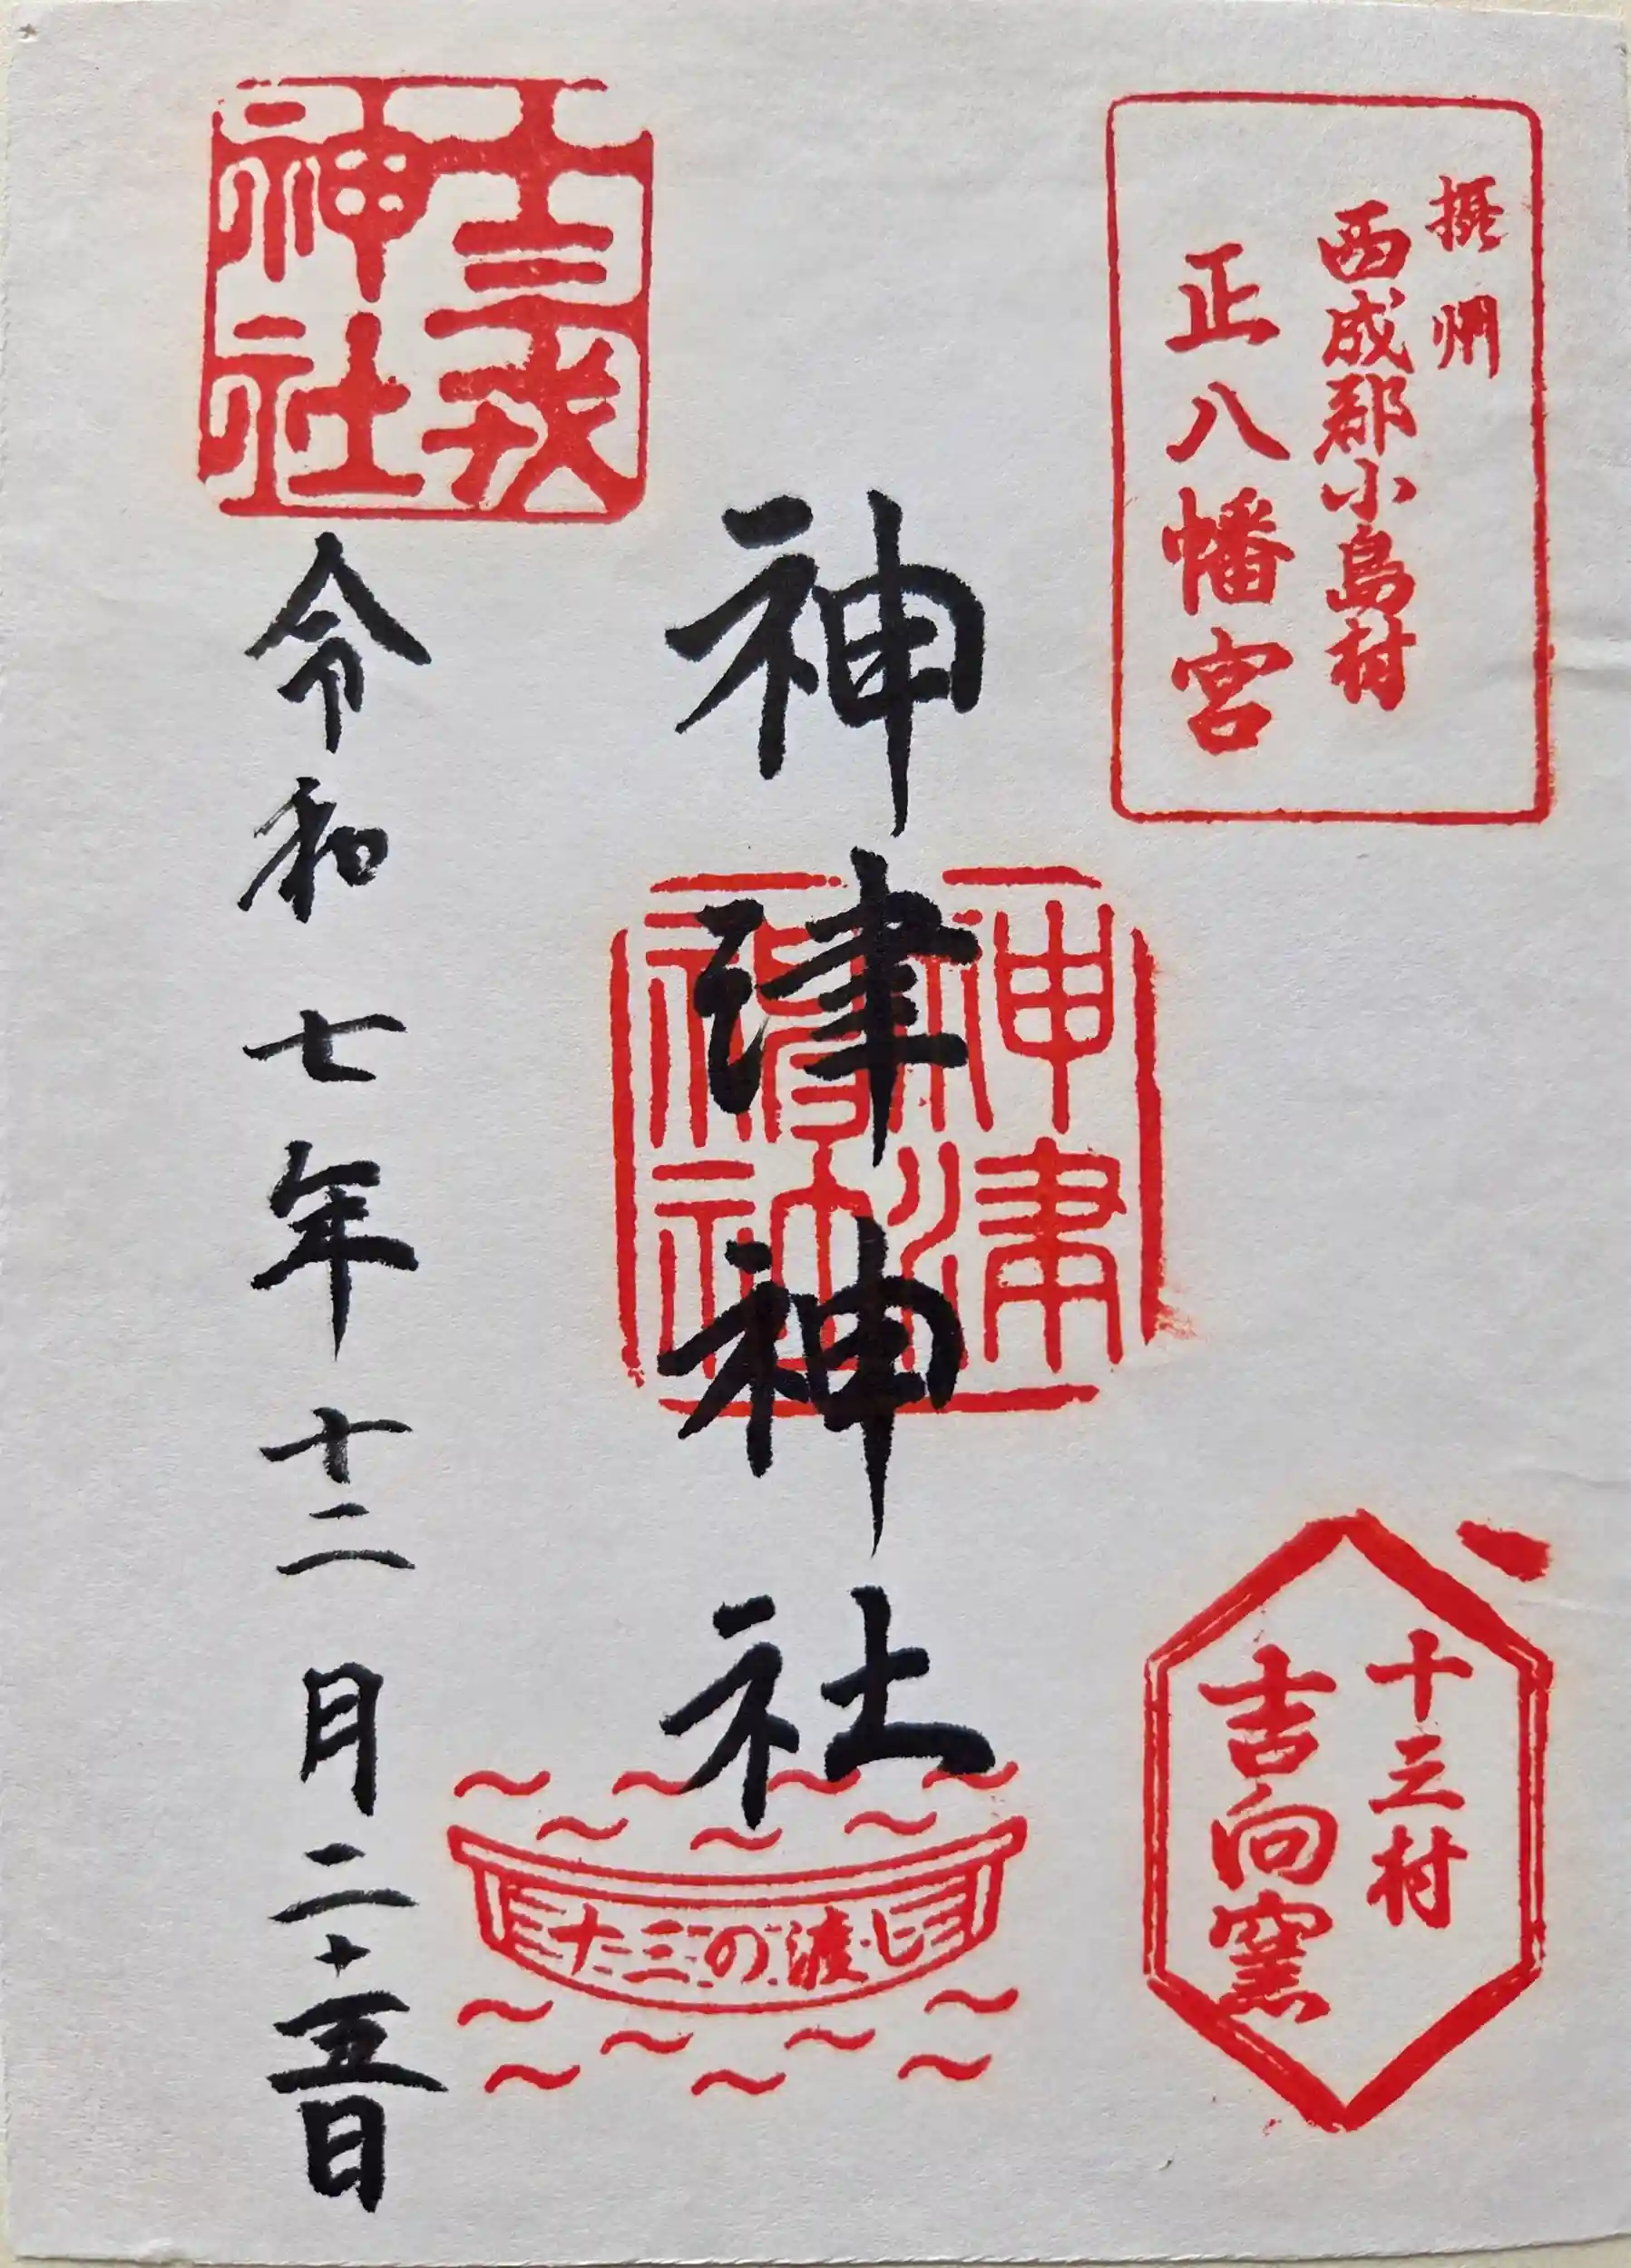 摂州
西成郡小島村
正八幡宮
十三村
吉向窯
神津神社
神津
神社
十三の渡し
十三戎
神社
令和七年十二月二十五日